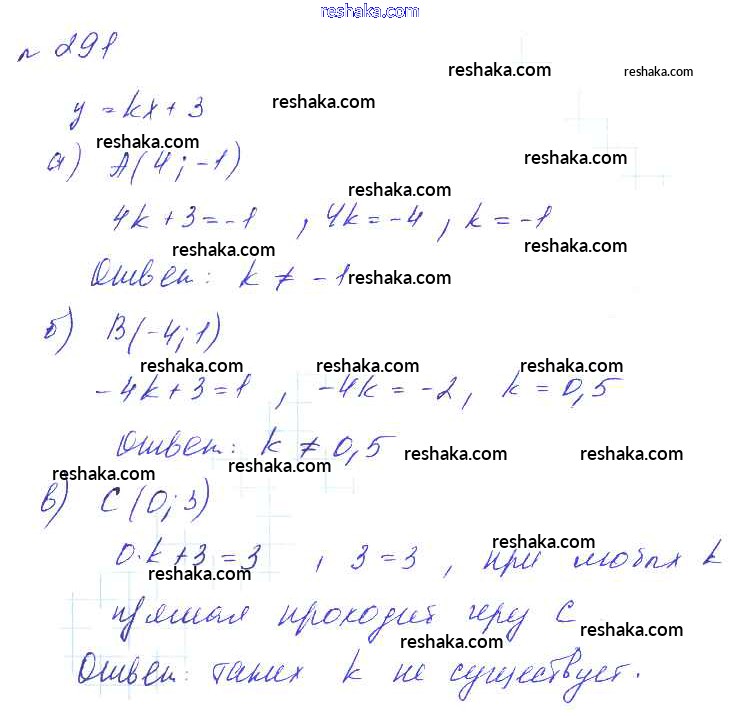 reshaka.com
№ 291
reshaka.com reshaka.com
y = kx + 3 reshaka.com
reshaka.com
а) A(4; -1) reshaka.com
reshaka.com
4k + 3 = -1 , 4k = -4 , k = -1
reshaka.com
Ответ: k ≠ -1 reshaka.com
б) B(-4; 1)
reshaka.com reshaka.com reshaka.com
-4k + 3 = 1 , -4k = -2, k = 0,5
Ответ: k ≠ 0,5 reshaka.com reshaka.com
reshaka.com reshaka.com
в) C(0; 3)
reshaka.com
0·k + 3 = 3 , 3 = 3 , при любых k
reshaka.com
прямая проходит через C
reshaka.com reshaka.com
Ответ: таких k не существует.